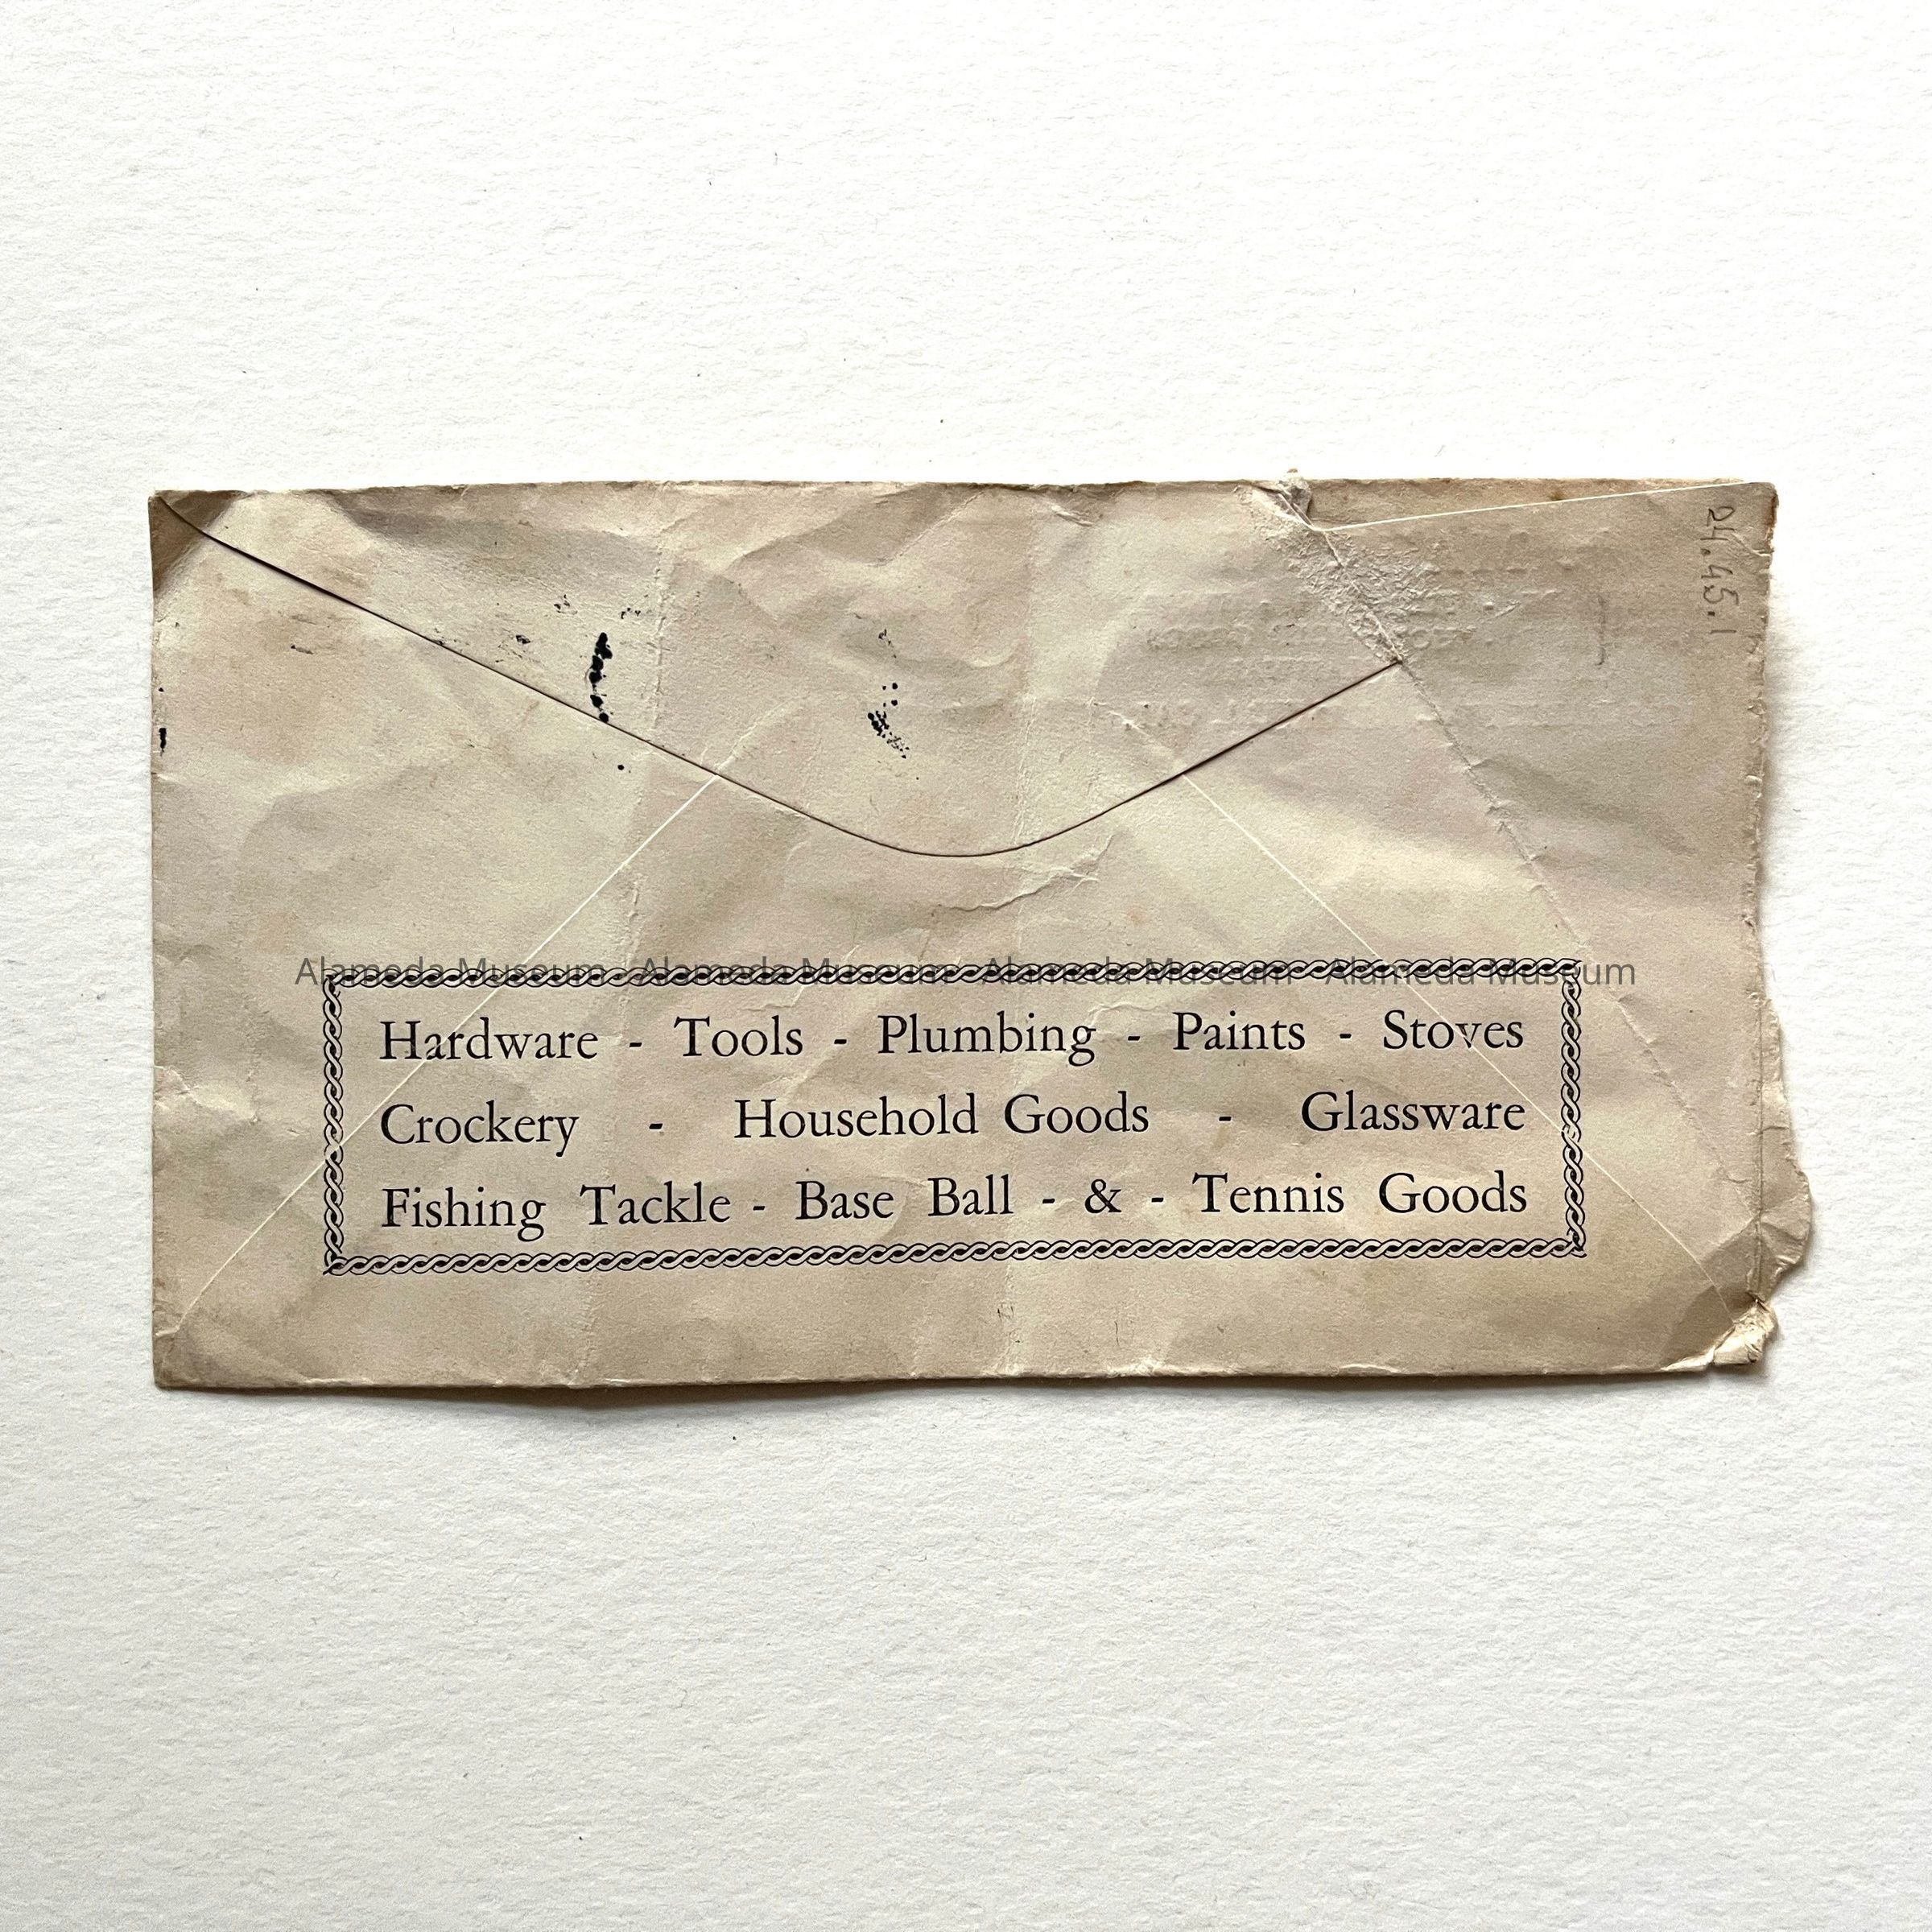 24.45.1
Alameda Museum - Alameda Museum - Alameda Museum - Alameda Museum
Hardware - Tools - Plumbing - Paints - Stoves
Crockery - Household Goods - Glassware
Fishing Tackle - Base Ball - & - Tennis Goods